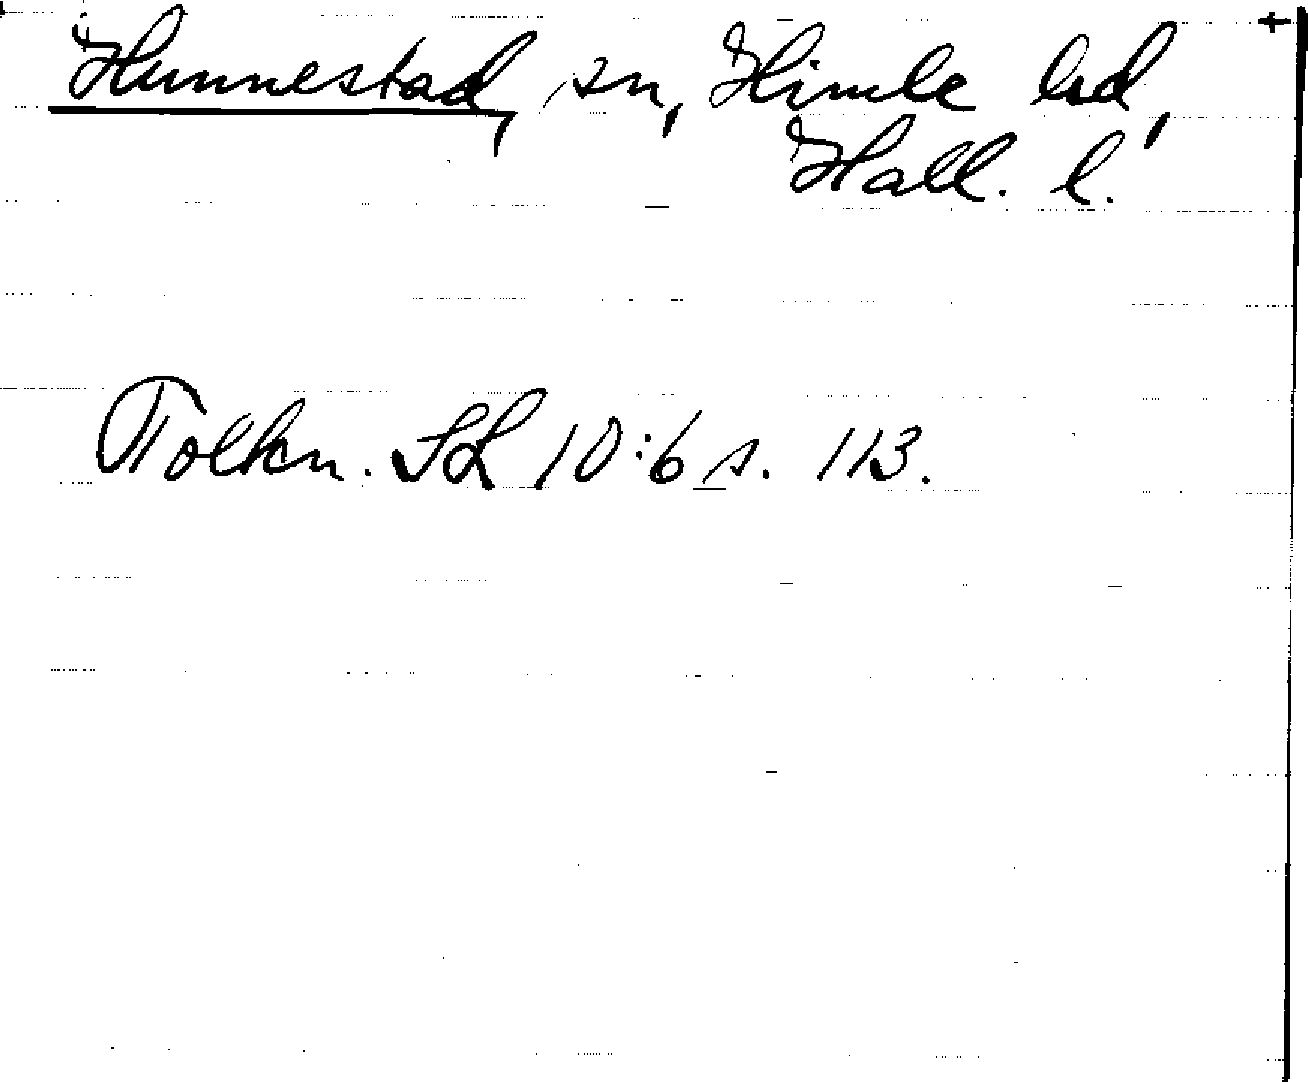 Hunnestad, sn, Himle hd,
Hall. l.
Tolkn. SL 10:6 s. 113.